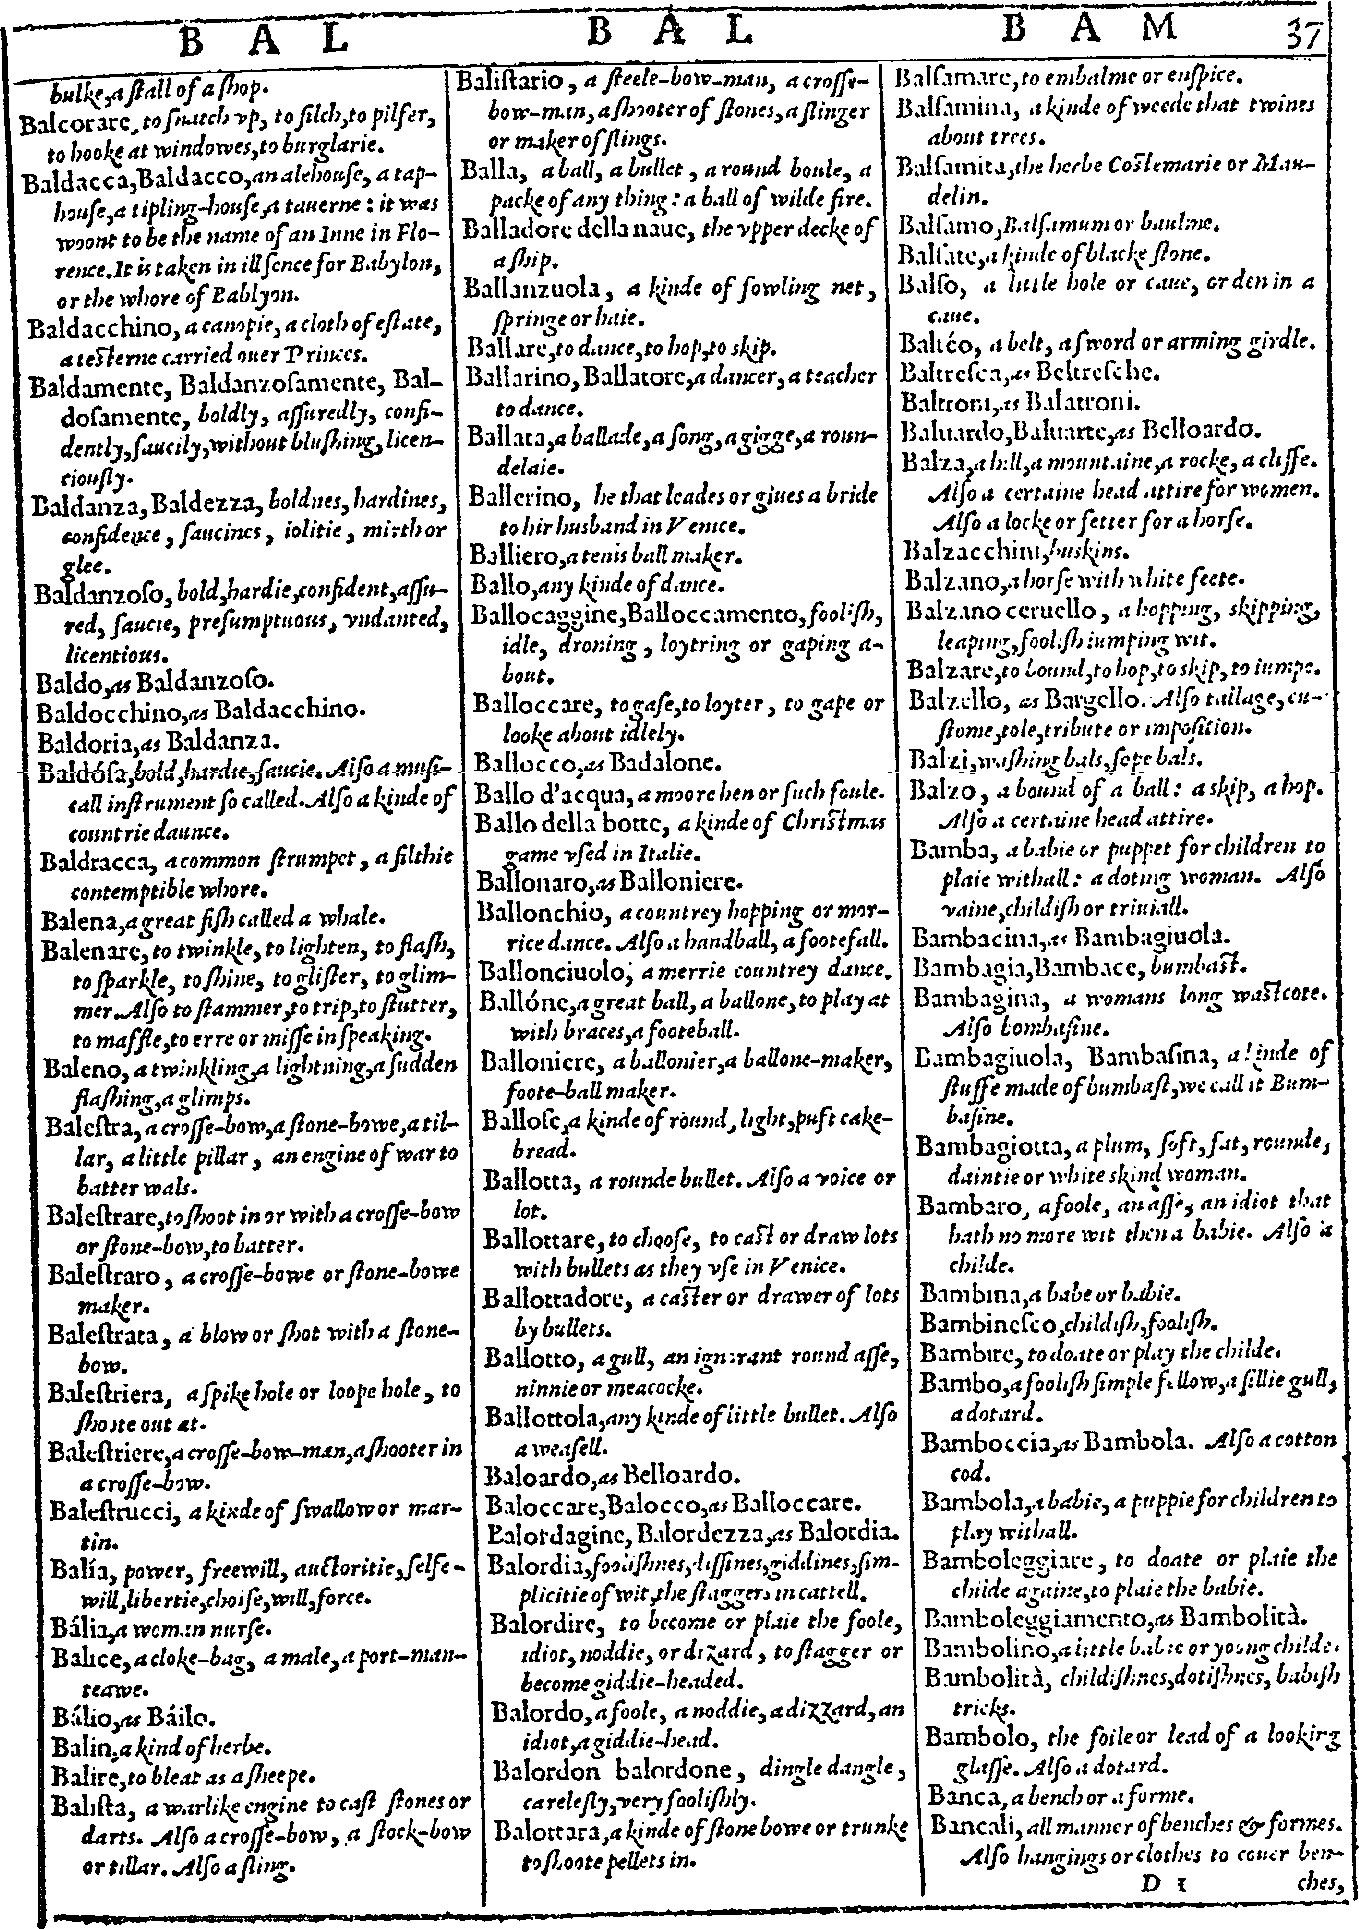 B A L
B A L
B A M
37
bulke, a ſtall of a ſhop.
Balcorare, to ſnatch vp, to filch, to pilfer,
to hooke at windowes, to burglarie.
Baldacca, Baldacco, an alehouſe, a tap-
houſe, a tipling-houſe, a tauerne: it was
woont to be the name of an Inne in Flo-
rence. It is taken in ill ſence for Babylon,
or the whore of Bablyon.
Baldacchino, a canopie, a cloth of eſtate,
a teſterne carried ouer Princes.
Baldamente, Baldanzoſamente, Bal-
doſamente, boldly, aſſuredly, confi-
dently, ſaucily, without bluſhing, licen-
ciouſly.
Baldanza, Baldezza, boldnes, hardines,
confidence, ſaucines, iolitie, mirth or
glee.
Baldanzoſo, bold, hardie, confident, aſſu-
red, ſaucie, preſumptuous, vndanted,
licentious.
Baldo, as Baldanzoſo.
Baldocchino, as Baldacchino.
Baldoria, as Baldanza.
Baldóſa, bold, hardie, ſaucie. Alſo a muſi-
call inſtrument ſo called. Alſo a kinde of
countrie daunce.
Baldracca, a common ſtrumpet, a filthie
contemptible whore.
Balena, a great fiſh called a whale.
Balenare, to twinkle, to lighten, to flaſh,
to ſparkle, to ſhine, to gliſter, to glim-
mer. Alſo to ſtammer, to trip, to ſtutter,
to maffle, to erre or miſſe in ſpeaking.
Baleno, a twinkling, a lightning, a ſudden
flaſhing, a glimps.
Baleſtra, a croſſe-bow, a ſtone-bowe, a til-
lar, a little pillar, an engine of war to
batter wals.
Baleſtrare, to ſhoot in or with a croſſe-bow
or ſtone-bow, to batter.
Baleſtraro, a croſſe-bowe or ſtone-bowe
maker.
Baleſtrata, a blow or ſhot with a ſtone-
bow.
Baleſtriera, a ſpike hole or loope hole, to
ſhoote out at.
Baleſtriere, a croſſe-bow-man, a ſhooter in
a croſſe-bow.
Baleſtrucci, a kinde of ſwallow or mar-
tin.
Balía, power, freewill, auctoritie, ſelfe-
will, libertie, choiſe, will, force.
Bália, a woman nurſe.
Balice, a cloke-bag, a male, a port-man-
teawe.
Bálio, as Báilo.
Balin, a kind of herbe.
Balire, to bleat as a ſheepe.
Baliſta, a warlike engine to caſt ſtones or
darts. Alſo a croſſe-bow, a ſtock-bow
or tillar. Alſo a ſling.
Baliſtario, a ſteele-bow-man, a croſſe-
bow-man, a ſhooter of ſtones, a ſlinger
or maker of ſlings.
Balla, a ball, a bullet, a round boule, a
packe of any thing: a ball of wilde fire.
Balladore della naue, the vpper decke of
a ſhip.
Ballanzuola, a kinde of fowling net,
ſpringe or haie.
Ballare, to dance, to hop, to skip.
Ballarino, Ballatore, a dancer, a teacher
to dance.
Ballata, a ballade, a ſong, a gigge, a roun-
delaie.
Ballerino, he that leades or giues a bride
to hir husband in Venice.
Balliero, a tenis ball maker.
Ballo, any kinde of dance.
Ballocaggine, Balloccamento, fooliſh,
idle, droning, loytring or gaping a-
bout.
Balloccare, to gaſe, to loyter, to gape or
looke about idlely.
Ballocco, as Badalone.
Ballo d'acqua, a moore hen or ſuch foule.
Ballo della botte, a kinde of Chriſtmas
game vſed in Italie.
Ballonaro, as Balloniere.
Ballonchio, a countrey hopping or mor-
rice dance. Alſo a handball, a footefall.
Ballonciuolo, a merrie countrey dance.
Ballóne, a great ball, a ballone, to play at
with braces, a footeball.
Balloniere, a ballonier, a ballone-maker,
foote-ball maker.
Balloſe, a kinde of round, light, puft cake-
bread.
Ballotta, a rounde bullet. Alſo a voice or
lot.
Ballottare, to chooſe, to caſt or draw lots
with bullets as they vſe in Venice.
Ballottadore, a caſter or drawer of lots
by bullets.
Ballotto, a gull, an ignorant round aſſe,
ninnie or meacocke.
Ballottola, any kinde of little bullet. Alſo
a weaſell.
Baloardo, as Belloardo.
Baloccare, Balocco, as Balloccare.
Balordagine, Balordezza, as Balordia.
Balordia, fooliſhnes, diſſines, giddines, ſim-
plicitie of wit, the ſtaggers in cattell.
Balordire, to become or plaie the foole,
idiot, noddie, or dizard, to ſtagger or
become giddie-headed.
Balordo, a foole, a noddie, a dizzard, an
idiot, a giddie-head.
Balordon balordone, dingle dangle,
careleſly, very fooliſhly.
Balottara, a kinde of ſtone bowe or trunke
to ſhoote pellets in.
Balſamare, to embalme or enſpice.
Balſamina, a kinde of weede that twines
about trees.
Balſamita, the herbe Coſtemarie or Mau-
delin.
Balſamo, Balſamum or baulme.
Balſate, a kinde of blacke ſtone.
Balſo, a little hole or caue, or den in a
caue.
Baltéo, a belt, a ſword or arming girdle.
Baltreſca, as Beltreſche.
Baltroni, as Balatroni.
Baluardo, Baluarte, as Belloardo.
Balza, a hill, a mountaine, a rocke, a cliffe.
Alſo a certaine head attire for women.
Alſo a locke or fetter for a horſe.
Balzacchini, buskins.
Balzano, a horſe with white feete.
Balzano ceruello, a hopping, skipping,
leaping, fooliſh iumping wit.
Balzare, to bound, to hop, to skip, to iumpe.
Balzello, as Bargello. Alſo tallage, cu-
ſtome, tole, tribute or impoſition.
Balzi, waſhing bals, ſope bals.
Balzo, a bound of a ball: a skip, a hop.
Alſo a certaine head attire.
Bamba, a babie or puppet for children to
plaie withall: a doting woman. Alſo
vaine, childiſh or triuiall.
Bambacina, as Bambagiuola.
Bambagia, Bambace, bumbaſt.
Bambagina, a womans long waſtcote.
Alſo bombaſine.
Bambagiuola, Bambaſina, a kinde of
ſtuffe made of bumbaſt, we call it Bum-
baſine.
Bambagiotta, a plum, ſoft, fat, rounde,
daintie or white skind woman.
Bambaro, a foole, an aſſe, an idiot that
hath no more wit then a babie. Alſo a
childe.
Bambina, a babe or babie.
Bambineſco, childiſh, fooliſh.
Bambire, to doate or play the childe.
Bambo, a fooliſh ſimple fellow, a ſillie gull,
a dotard.
Bamboccia, as Bambola. Alſo a cotton
cod.
Bambola, a babie, a puppie for children to
play withall.
Bamboleggiare, to doate or plaie the
childe againe, to plaie the babie.
Bamboleggiamento, as Bambolità.
Bambolino, a little babie or young childe.
Bambolità, childiſhnes, dotiſhnes, babiſh
tricks.
Bambolo, the foile or lead of a looking
glaſſe. Alſo a dotard.
Banca, a bench or a forme.
Bancali, all manner of benches & formes.
Alſo hangings or clothes to couer ben-
D 1
ches,